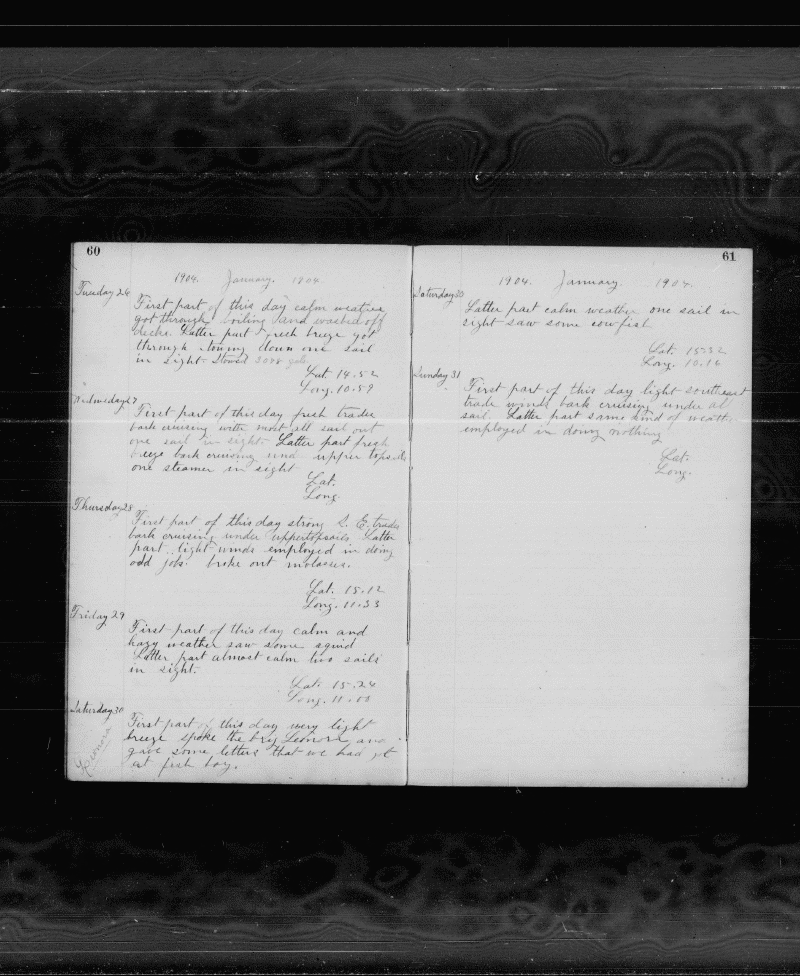 60
1904. January. 1904
Tuesday 26
First part of this day calm weather
got through boiling and washed off
decks. Latter part fresh breeze got
through down one sail
in sight. Stowed
Lat. 14.52
Long. 10.59
Wednesday 27
First part of this day fresh trades
bark cruising with most all sail out
one sail in sight. Latter part fresh
breeze bark cruising und upper topsails
one steamer in sight
Lat.
Long.
Thursday 28
First part of this day strong S. E. trades
bark cruising under uppertopsails Latter
part light winds employed in doing
odd jobs. broke out molasses.
Lat. 15.12
Long. 11.33
Friday 29
First part of this day calm and
hazy weather saw some squid
Latter part almost calm two sails
in sight.
Lat. 15.24
Long. 11.00
Saturday 30
Leonora
First part of this day very light
breeze spoke the brig Leonora and
gave some letters that we had got
at fish bay.
61
1904. January. 1904.
Saturday 30
Latter part calm weather one sail in
sight saw some cowfish
Lat. 15.32
Long. 10.16
Sunday 31
First part of this day light southeast
trade winds bark cruising under all
sail. Latter part same kind of weath
employed in doing nothing
Lat.
Long.